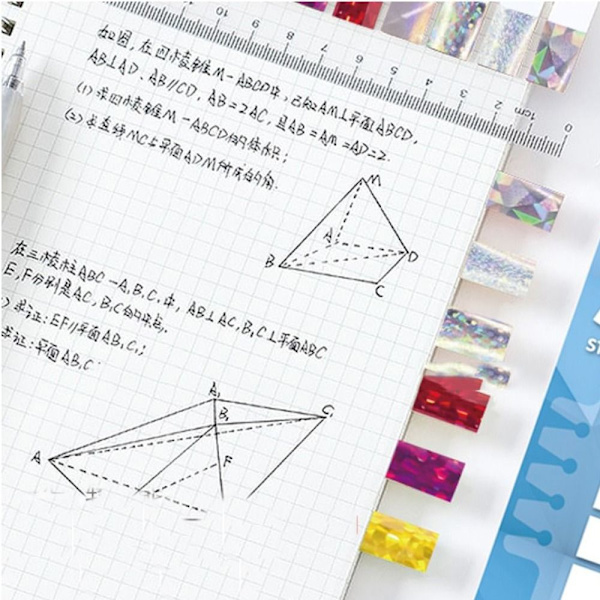 10 9 8 7 6 5 4 3 2 1cm 0
如图,在四棱锥M-ABCD中,已知AM⊥平面ABCD,
AB⊥AD,AB//CD,AB=2AC,且AB=AM=AD=2.
(1)求四棱锥M-ABCD的体积;
(2)求直线MC与平面ADM所成的角.
M
A
B
D
C
在三棱柱ABC-A,B,C,中,AB⊥AC,B,C⊥平面ABC
E,F分别是AC,B,C的中点.
)求证:EF//平面AB,C,;
求证:平面AB,C
A₁
B₁
C₁
A
F
ST